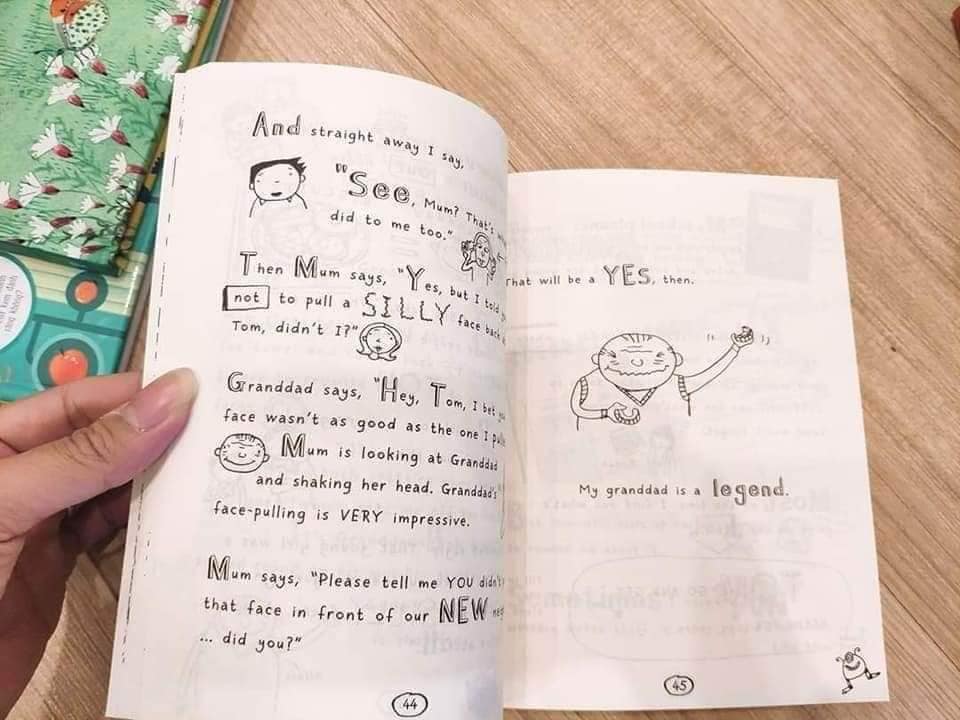 And straight away I say,
"See, Mum? That's
did to me too."
Then Mum says, "Yes, but I told
not to pull a SILLY face back
Tom, didn't I?"
Granddad says, "Hey, Tom, I bet
face wasn't as good as the one I
Mum is looking at Granddad
and shaking her head. Granddad's
face-pulling is VERY impressive.
Mum says, "Please tell me YOU didn't
that face in front of our NEW
... did you?"
44
That will be a YES, then.
My granddad is a legend.
45